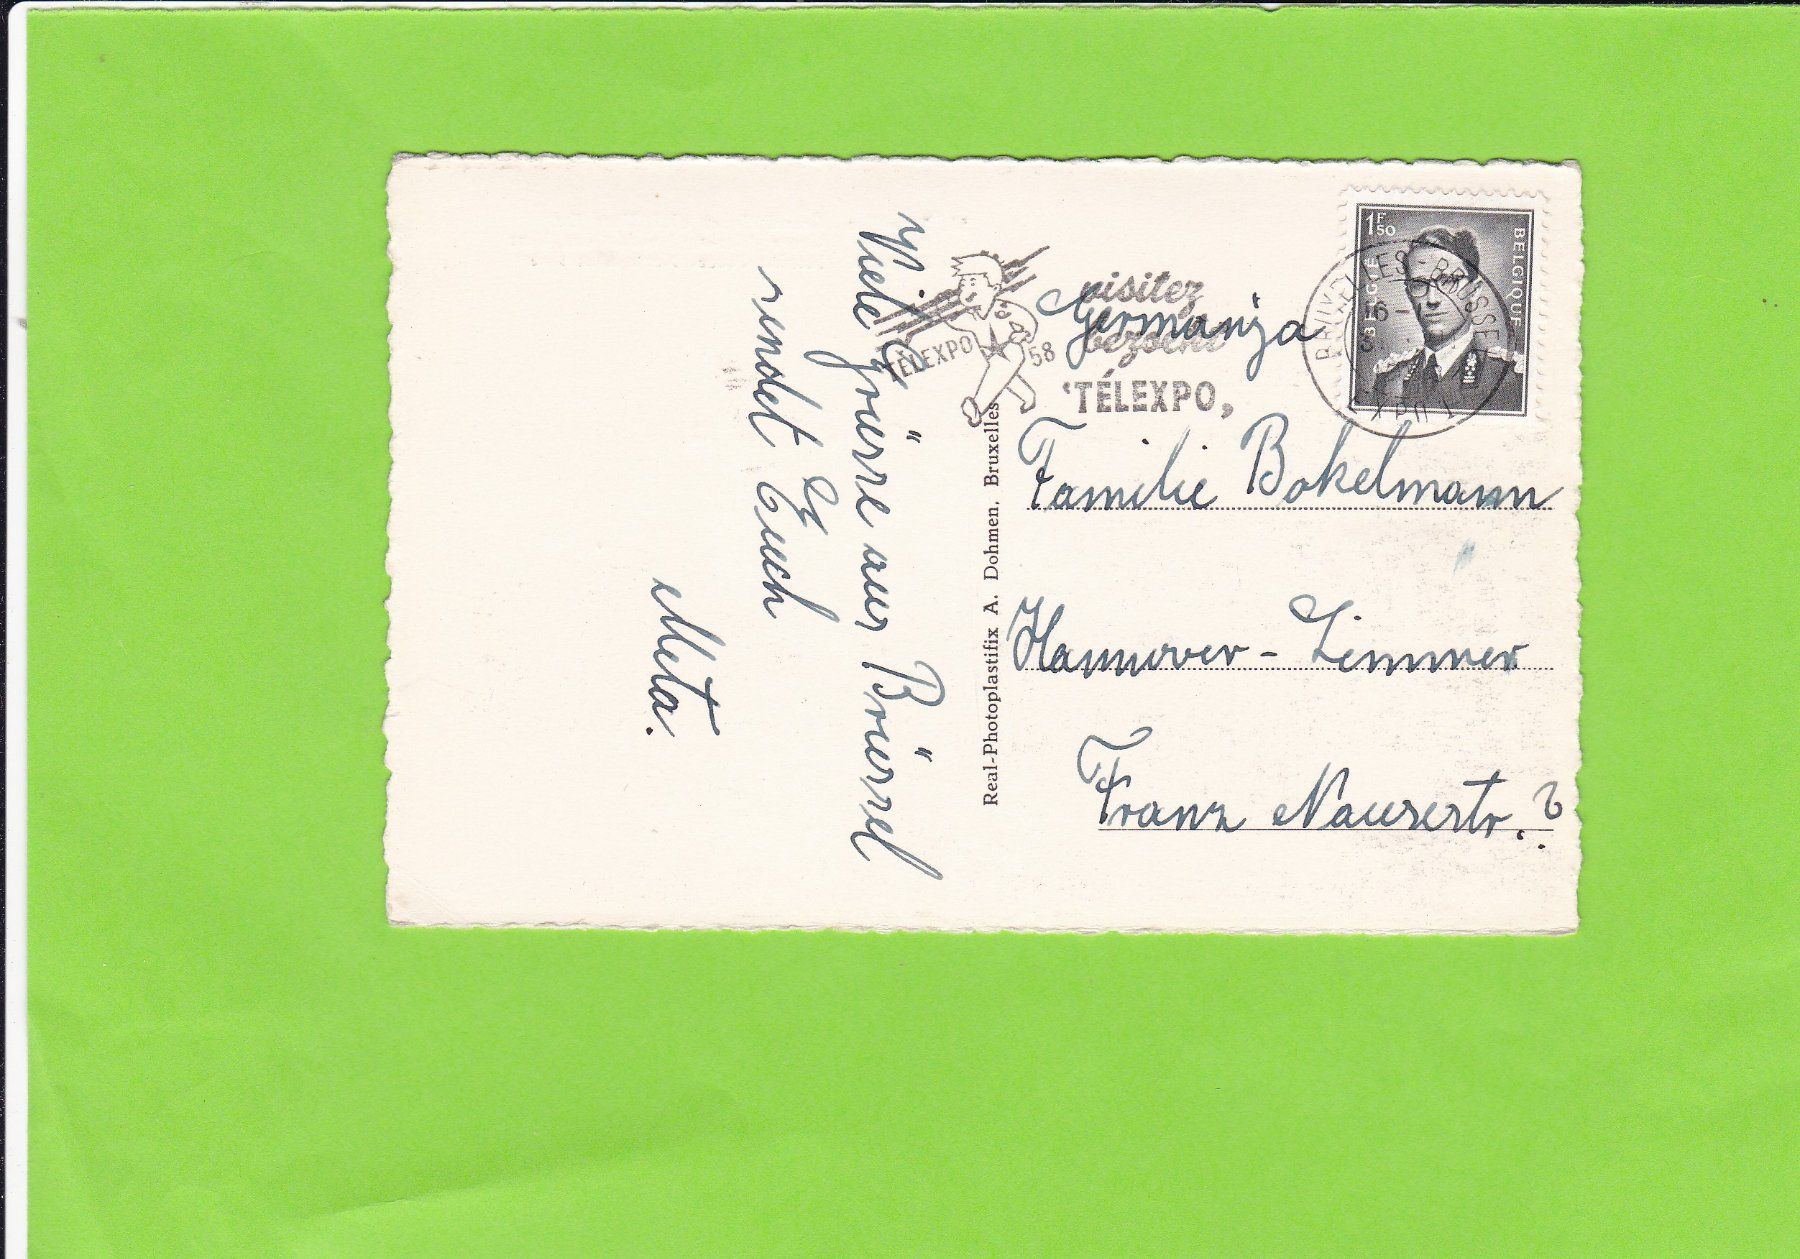 Viele Grüsse aus Brüssel
sendet Euch
Meta.
TÉLEXPO 58
visitez
bezoekt
'TÉLEXPO,
1F50
BELGIË
BELGIQUE
BRUXELLES - BRUSSEL
16 -
Real-Photoplastifix A. Dohmen, Bruxelles
Germanja
Familie Bokelmann
Hannover - Limmer
Franz Nauserstr. ?